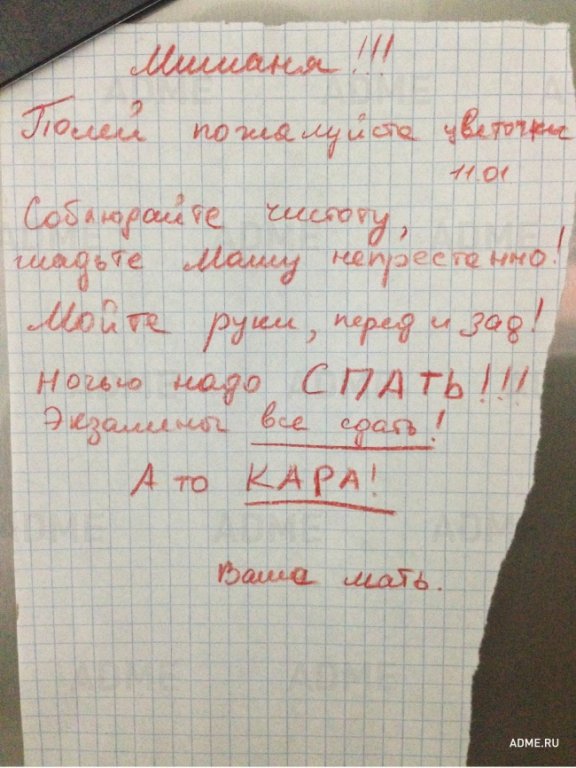 Мишаня!!!
Полей пожалуйста цветочки
11.01
Соблюдайте чистоту,
гладьте Машу непрестанно!
Мойте руки, перед и зад!
Ночью надо СПАТЬ!!!
Экзамены все сдать!
А то КАРА!
Ваша мать.
ADME.RU